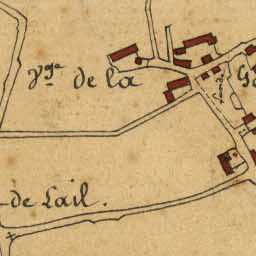 Vge de la
de Lail.